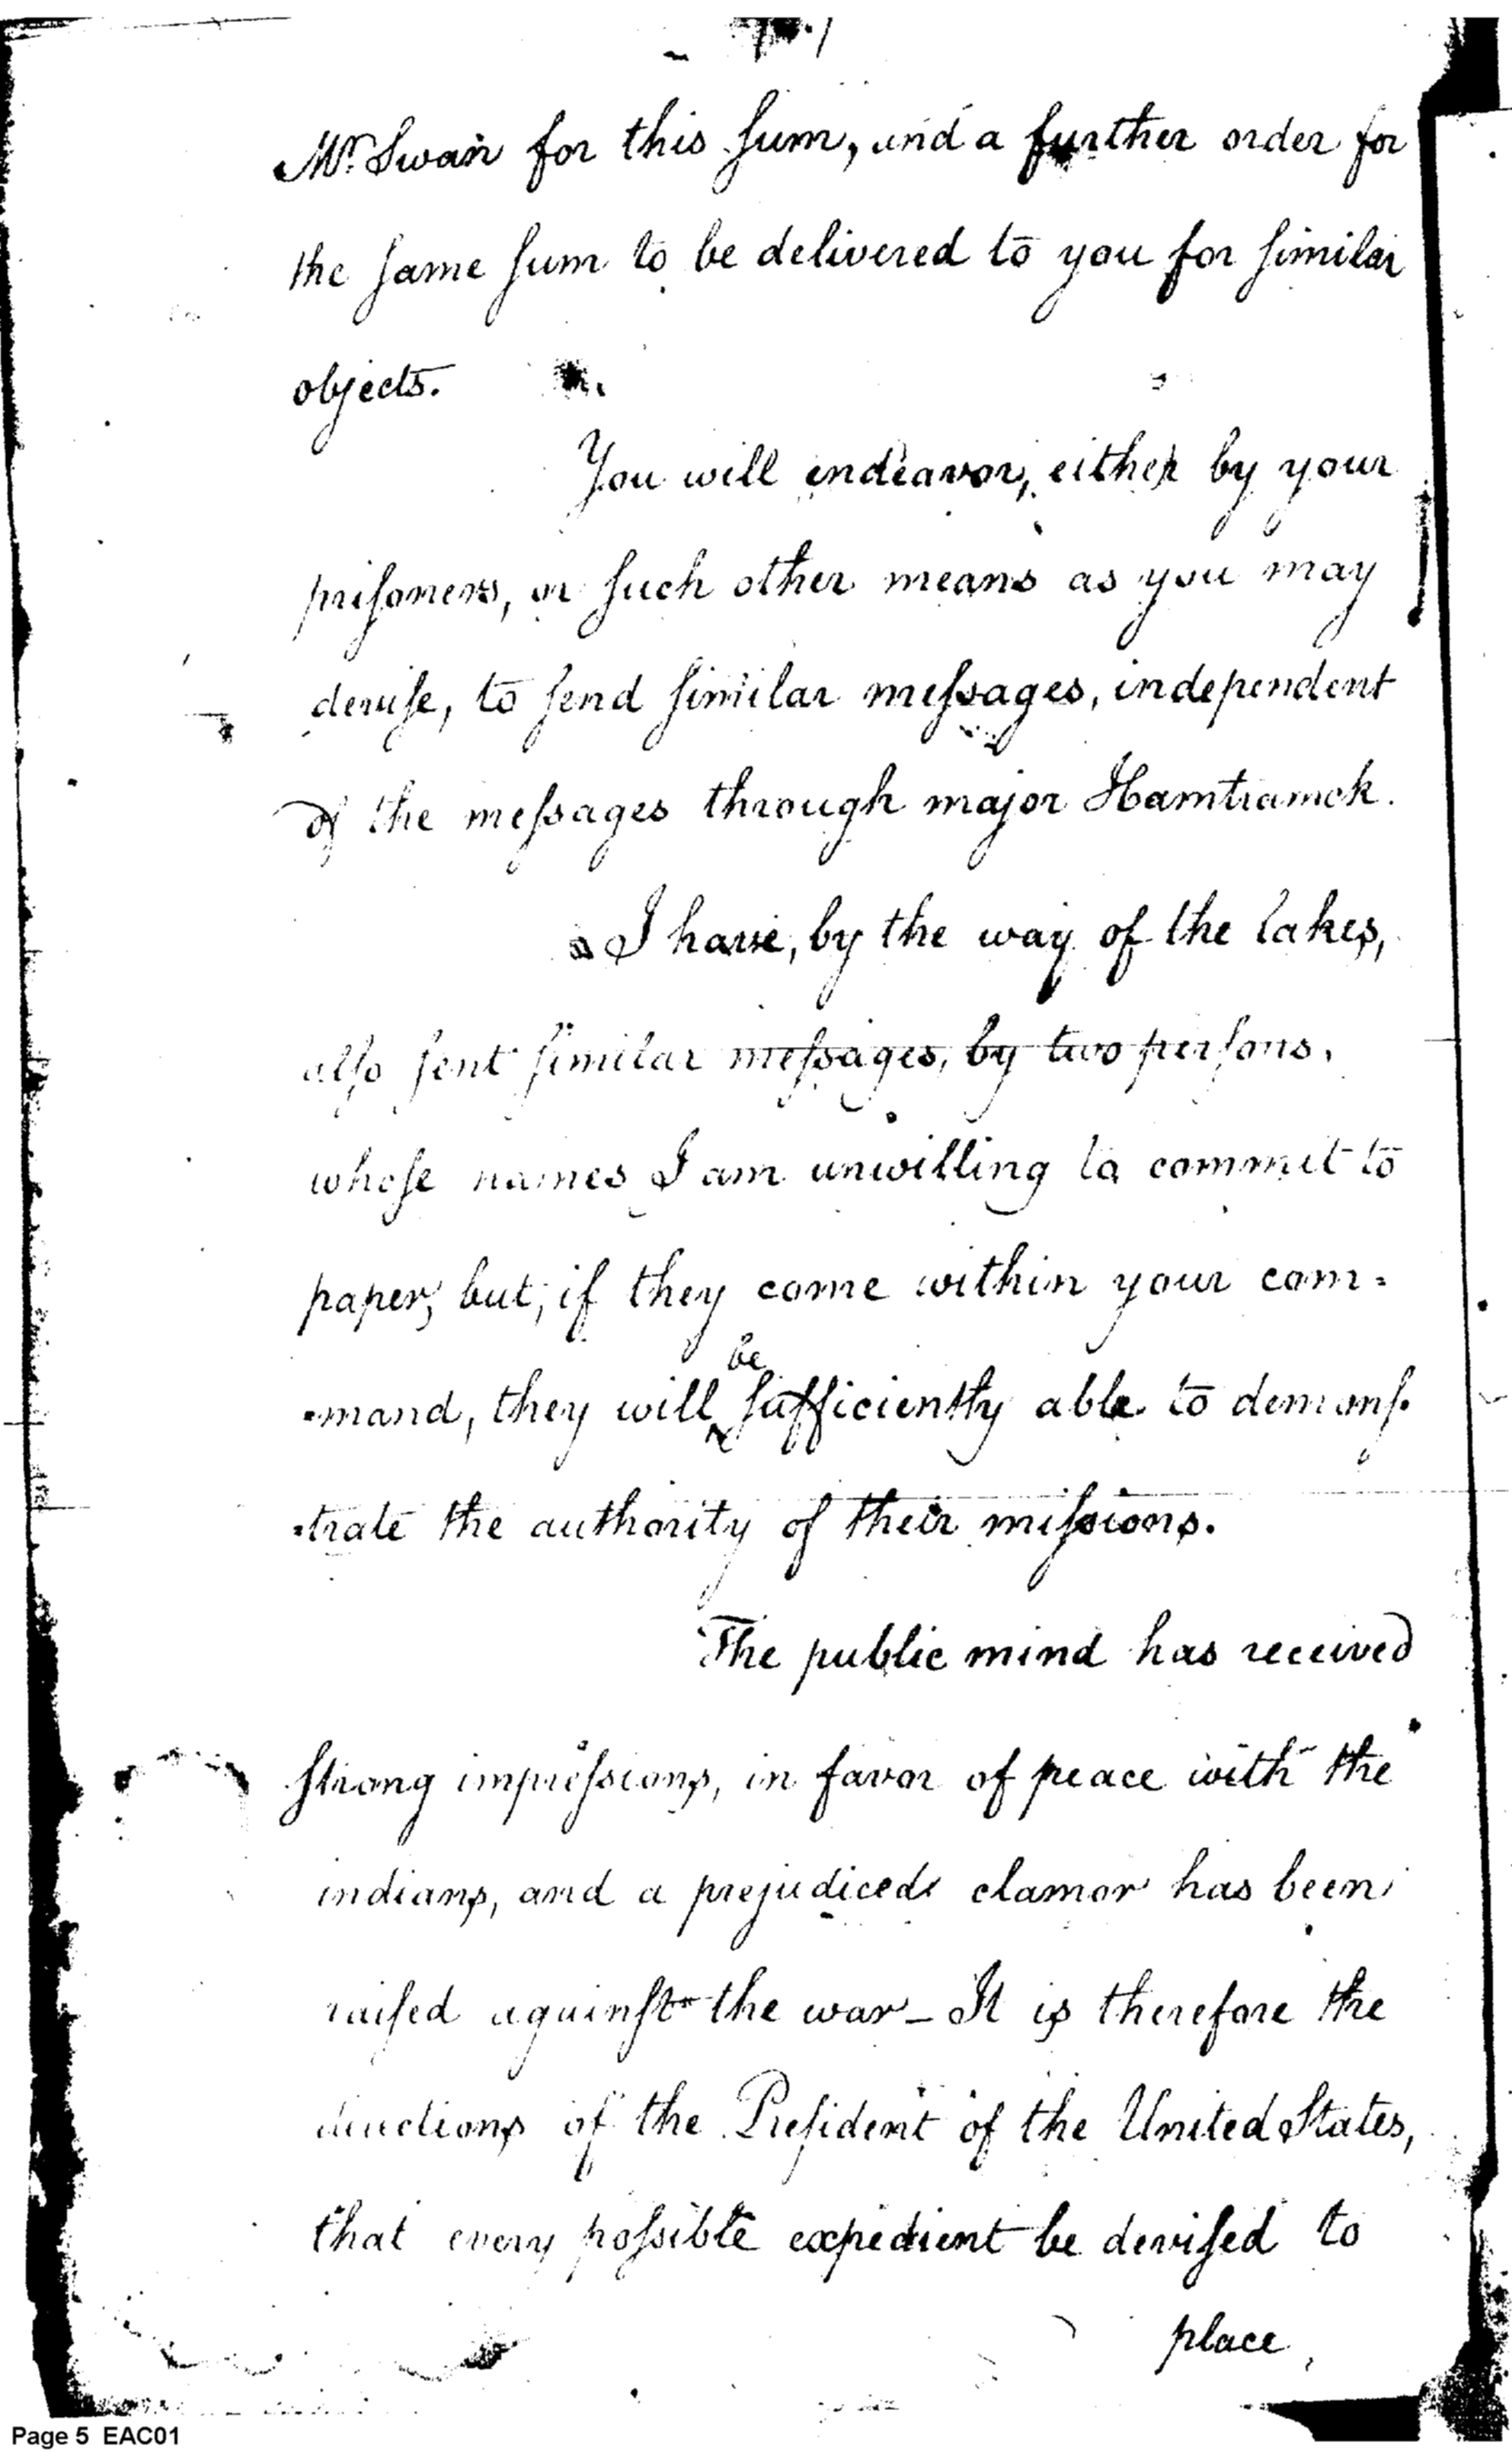 Mr. Swan for this sum, and a further order for
the same sum to be delivered to you for similar
objects.
You will endeavor, either by your
prisoners, or such other means as you may
devise, to send similar messages, independent
of the messages through major Hamtramck.
I have, by the way of the lakes,
also sent similar messages, by two persons,
whose names I am unwilling to commit to
paper, but, if they come within your com=
=mand, they will be sufficiently able to demons=
=trate the authority of their missions.
The public mind has received
strong impressions, in favor of peace with the
indians, and a prejudiced clamor has been
raised against the war_ It is therefore the
directions of the President of the United States,
that every possible expedient be devised to
place
Page 5 EAC01